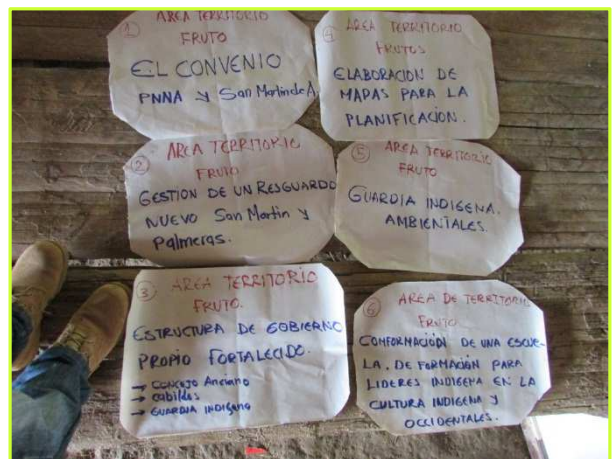 ① AREA TERRITORIO
FRUTO
EL CONVENIO
PNNA Y San Martin de A.
② AREA TERRITORIO
FRUTO
GESTION DE UN RESGUARDO
NUEVO San Martin y
Palmeras.
③ AREA TERRITORIO
FRUTO.
ESTRUCTURA DE GOBIERNO
PROPIO FORTALECIDO.
→ CONCEJO Anciano
→ cabildos
→ GUARDIA INDIGENA
④ AREA TERRITORIO
FRUTOS
ELABORACION DE
MAPAS PARA LA
PLANIFICACION.
⑤ AREA TERRITORIO
FRUTO
GUARDIA INDIGENA.
AMBIENTALES.
⑥ AREA DE TERRITORIO
FRUTO
COMFORMACIÓN DE UNA ESCUE-
LA. DE FORMACIÓN PARA
LIDERES INDIGENA EN LA
CULTURA INDIGENA Y
OCCIDENTALES.